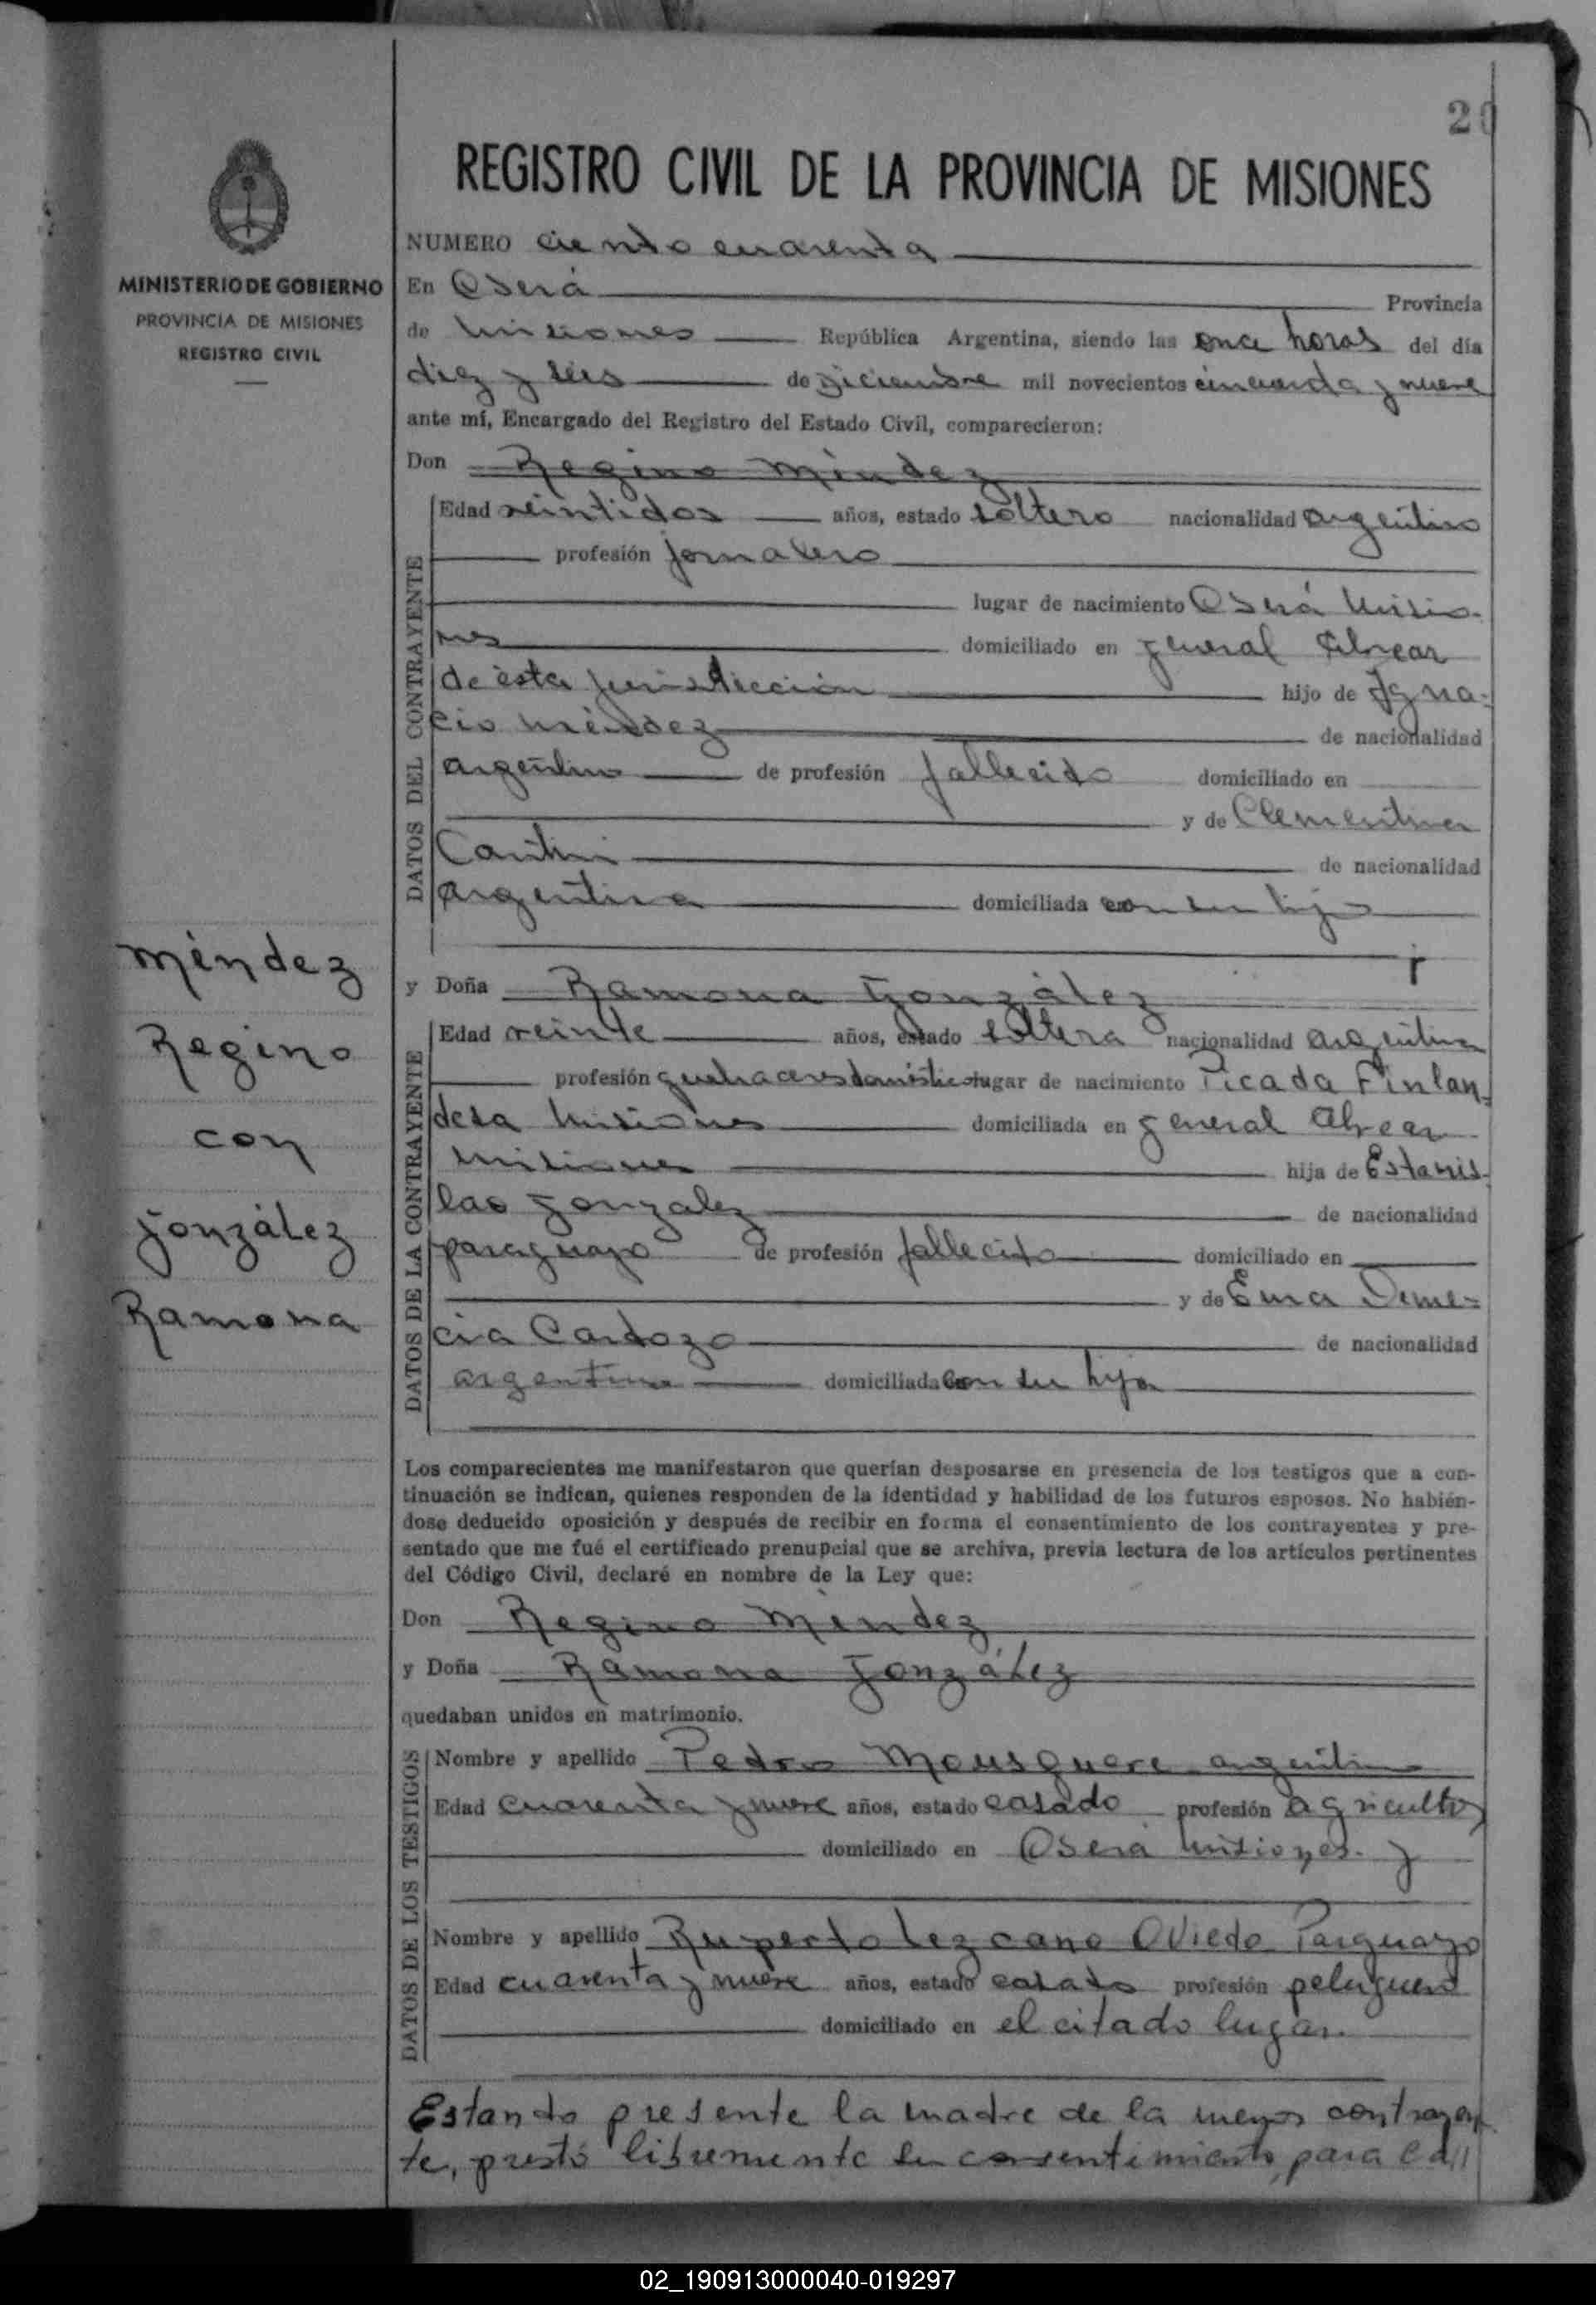 20
REGISTRO CIVIL DE LA PROVINCIA DE MISIONES
MINISTERIO DE GOBIERNO
PROVINCIA DE MISIONES
REGISTRO CIVIL
NUMERO ciento cuarenta
En Oberá Provincia
de Misiones República Argentina, siendo las once horas del día
diez y seis de Diciembre mil novecientos cincuenta y nueve
ante mí, Encargado del Registro del Estado Civil, comparecieron:
Don Regino Méndez
DATOS DEL CONTRAYENTE
Edad veintidos años, estado soltero nacionalidad argentino
profesión jornalero
lugar de nacimiento Oberá Misio-
nes domiciliado en general Alvear
de ésta jurisdicción hijo de Igna-
cio Méndez de nacionalidad
argentino de profesión fallecido domiciliado en
y de Clementina
de nacionalidad
argentina domiciliada con su hijo
Méndez
Regino
con
González
Ramona
y Doña Ramona González
DATOS DE LA CONTRAYENTE
Edad veinte años, estado soltera nacionalidad argentina
profesión quehaceres domésticos lugar de nacimiento Picada Finlan-
desa Misiones domiciliada en general Alvear
Misiones hija de Estanis-
lao Gonzalez de nacionalidad
paraguayo de profesión fallecido domiciliado en
y de Ema
Cardozo de nacionalidad
argentina domiciliada con su hija
Los comparecientes me manifestaron que querían desposarse en presencia de los testigos que a con-
tinuación se indican, quienes responden de la identidad y habilidad de los futuros esposos. No habién-
dose deducido oposición y después de recibir en forma el consentimiento de los contrayentes y pre-
sentado que me fué el certificado prenupcial que se archiva, previa lectura de los artículos pertinentes
del Código Civil, declaré en nombre de la Ley que:
Don Regino Méndez
y Doña Ramona González
quedaban unidos en matrimonio.
DATOS DE LOS TESTIGOS
Nombre y apellido Pedro Mousquere argentino
Edad cuarenta y nueve años, estado casado profesión agricultor
domiciliado en Oberá Misiones. y
Nombre y apellido Ruperto Lezcano Oviedo Parguayo
Edad cuarenta y nueve años, estado casado profesión peluquero
domiciliado en el citado lugar.
Estando presente la madre de la menor contrayen
te, prestó libremente su consentimiento, para
02_190913000040-019297